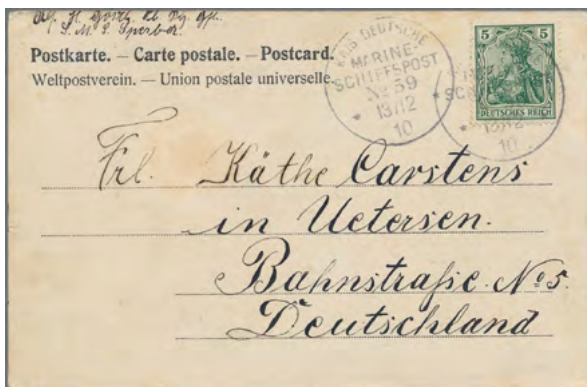 S. M. S. Sperber.
Postkarte. – Carte postale. – Postcard.
Weltpostverein. — Union postale universelle.
KAIS. DEUTSCHE
MARINE-
SCHIFFSPOST
No 59
* 13/12 *
10
5 5
DEUTSCHES REICH
13/12
10
Frl. Käthe Carstens
in Uetersen.
Bahnstraße No 5.
Deutschland